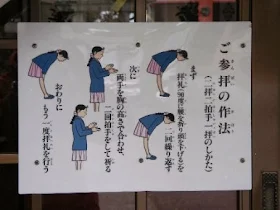 ご参拝の作法
（二拝二拍手一拝のしかた）
まず
拝礼（90度に腰を折り頭を下げる）を
二回繰り返す
次に
両手を胸の高さで合わせ
二回拍手をして祈る
おわりに
もう一度拝礼を行う